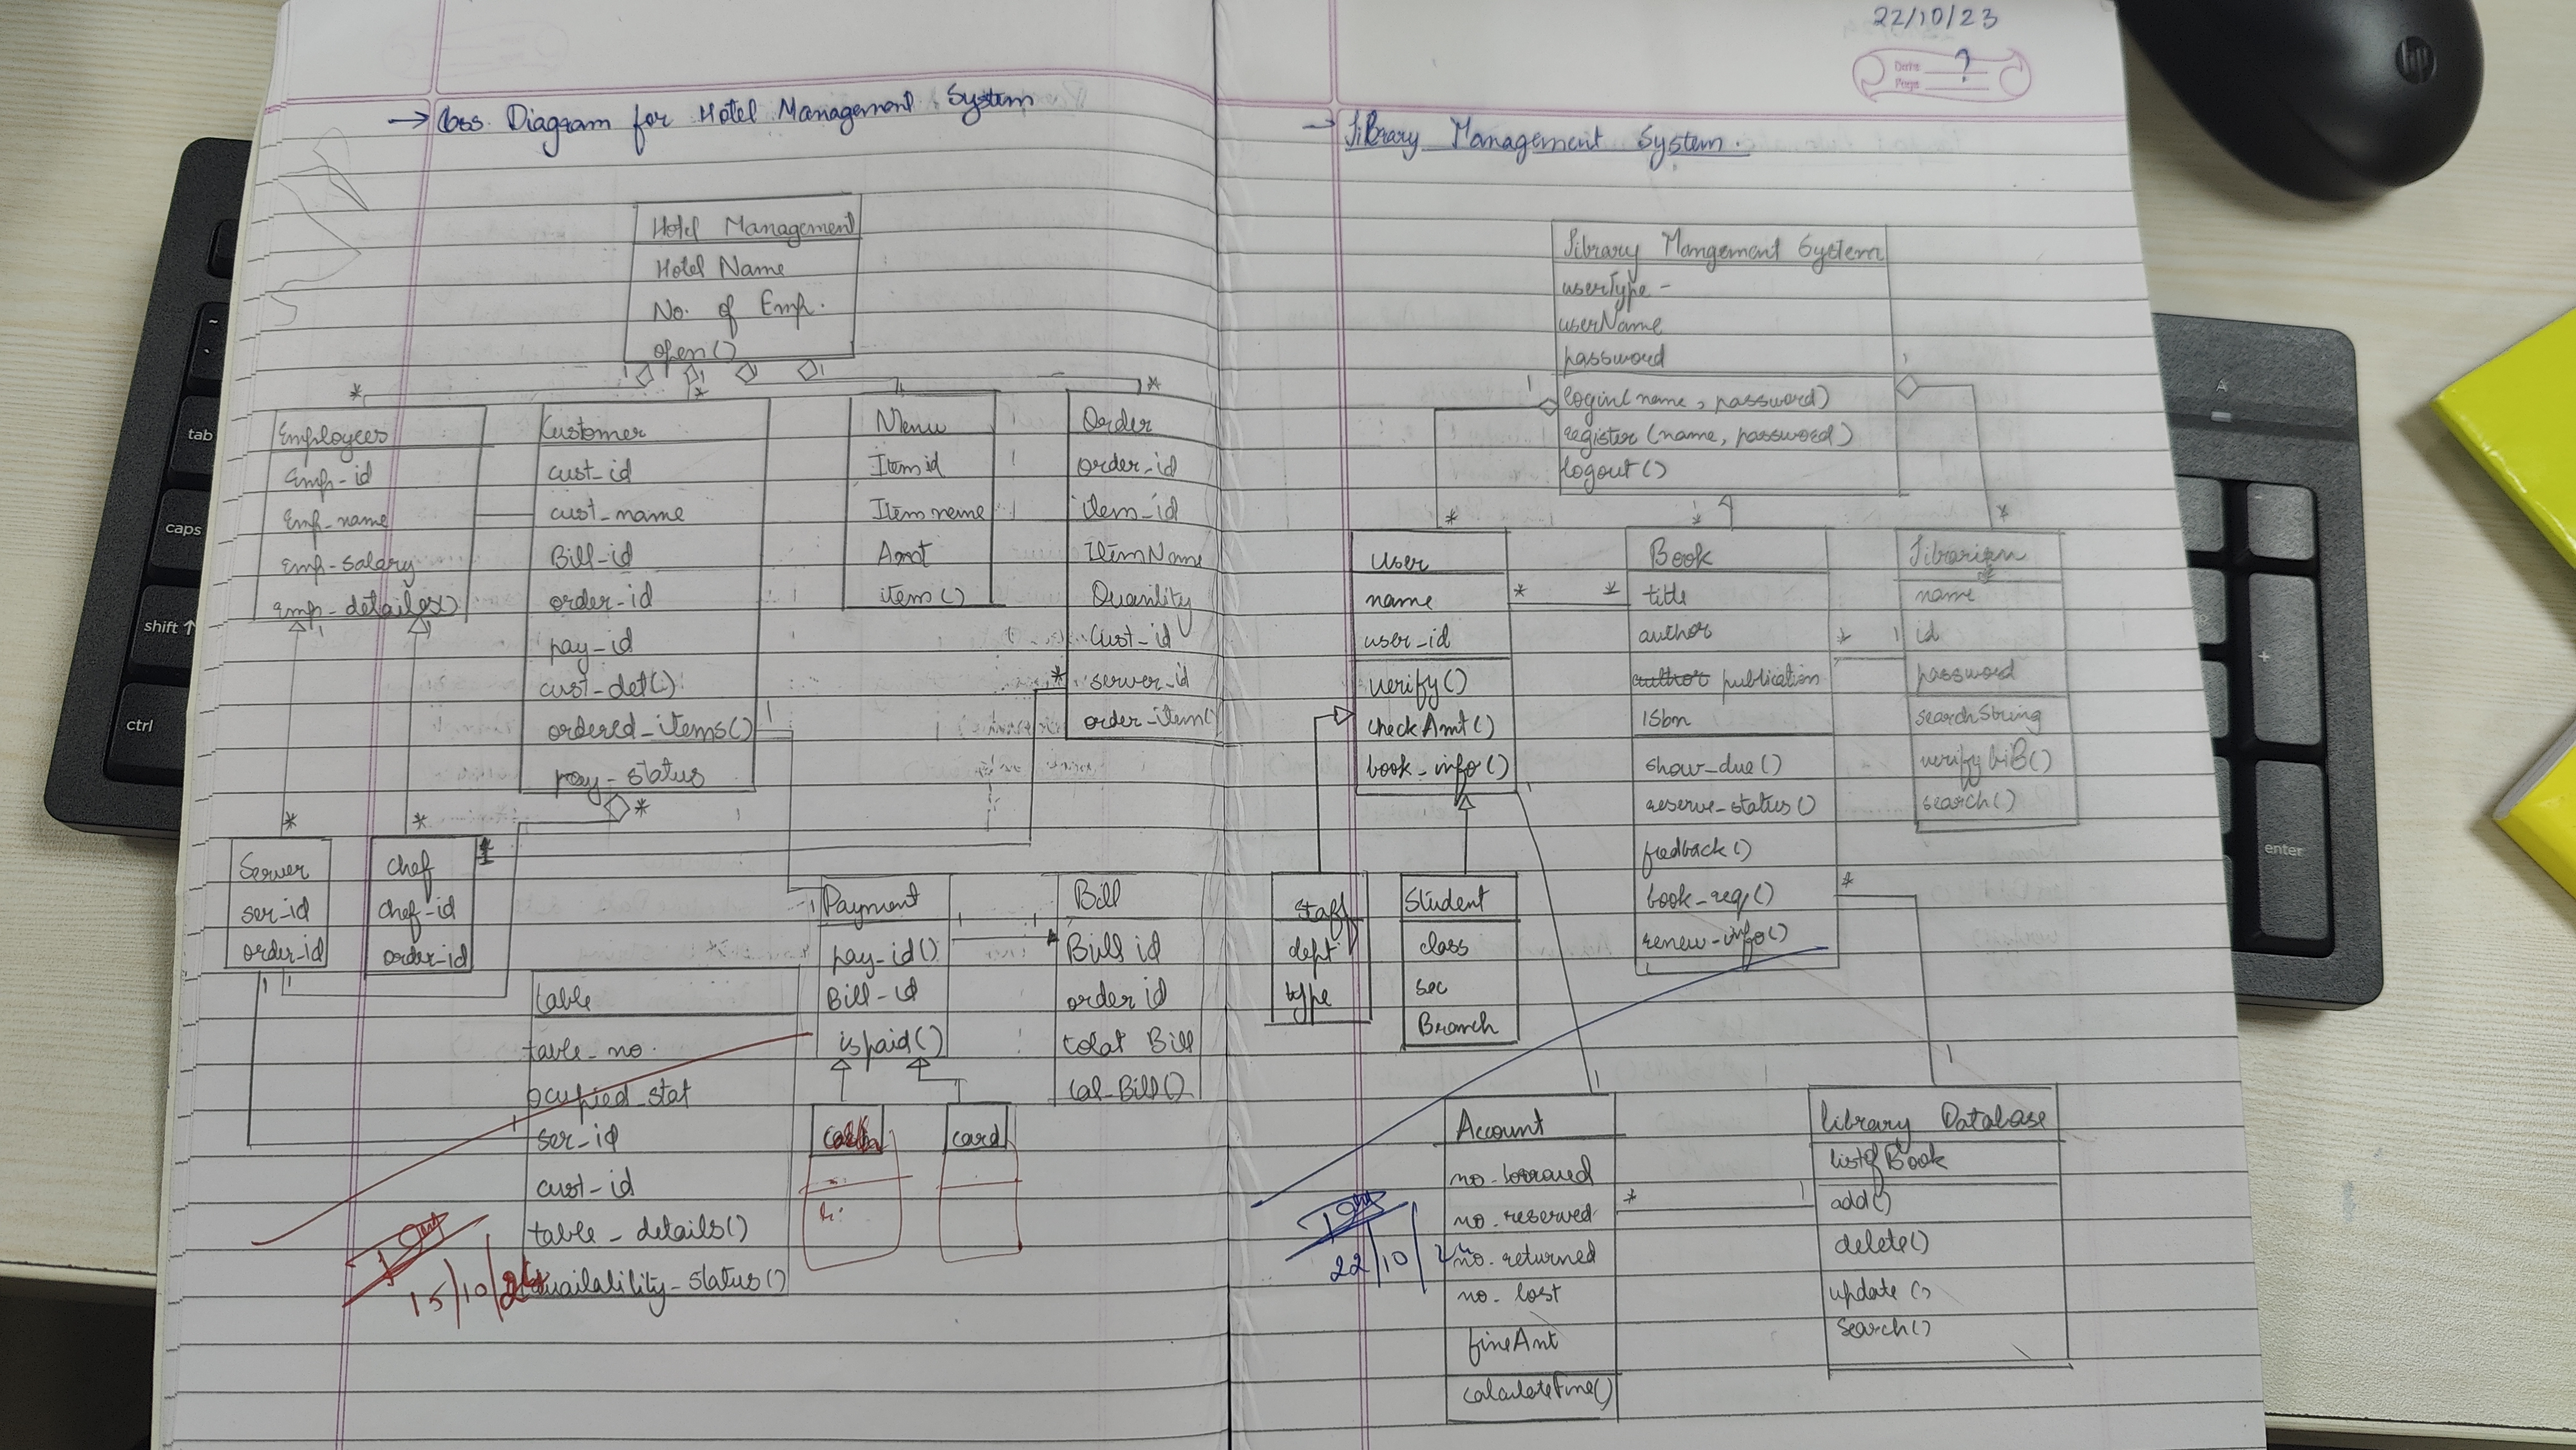 → Class Diagram for Hotel Management System
Hotel Management
Hotel Name
No. of Emp.
open()
Employees
Emp-id
Emp-name
Emp-salary
Customer
cust-id
cust-name
Bill-id
order-id
pay-id
cust-det()
ordered-items()
pay-status
Menu
Item id
Item name
Amt
item()
Order
order-id
item-id
ItemName
Quantity
Cust-id
server-id
order-item()
Server
ser-id
order-id
chef
chef-id
order-id
Payment
pay-id()
Bill-id
ispaid()
Bill
Bill id
order id
total Bill
Cal-Bill()
table
table-no.
ocupied-stat
ser-id
cust-id
table-details()
availability-status()
card
15/10/24
22/10/23
Date
Page
?
→ Library Management System.
Library Mangement System
userType -
userName
password
login(name, password)
register(name, password)
logout()
User
name
user-id
verify()
checkAmt()
book-info()
Book
title
author
author publication
isbn
show-due()
reserve-status()
feedback()
book-req()
renew-info()
Librarian
name
id
password
searchString
verifyliB()
search()
Staff
dept
type
Student
class
sec
Branch
Account
no-borrowed
no-reserved
no-returned
no-lost
fineAmt
calculateFine()
library Database
listofBook
add()
delete()
update()
search()
22/10/2
~
tab
caps
shift ↑
ctrl
A
-
+
enter
hp